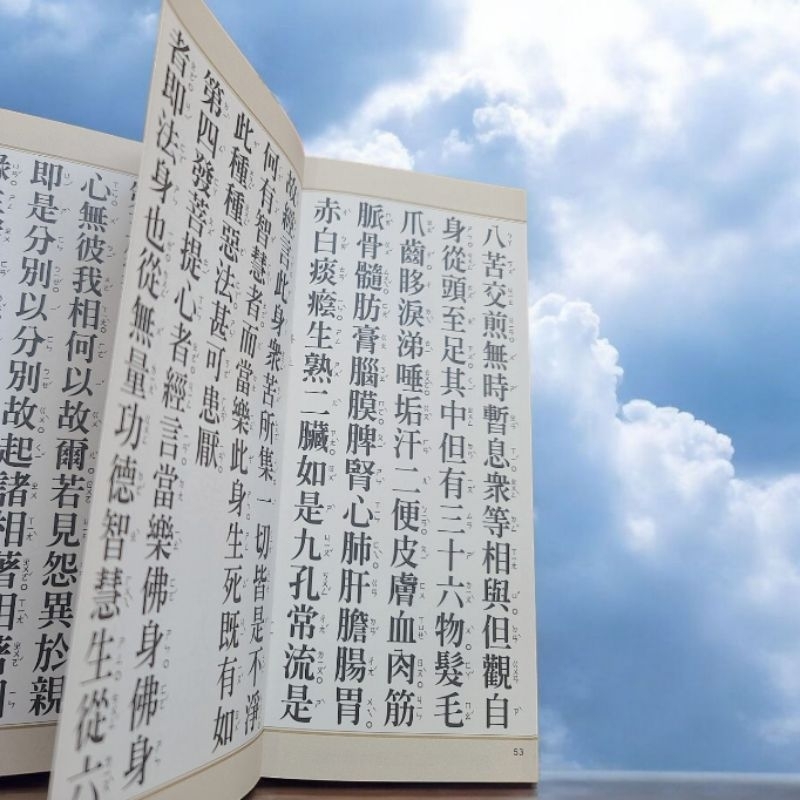 八苦交煎無時暫息衆等相與但觀自
身從頭至足其中但有三十六物髮毛
爪齒眵淚涕唾垢汗二便皮膚血肉筋
脈骨髓肪膏腦膜脾腎心肺肝膽腸胃
赤白痰癊生熟二臟如是九孔常流是
53
故經言此身衆苦所集一切皆是不淨
何有智慧者而當樂此身生死既有如
此種種惡法甚可患厭
第四發菩提心者經言當樂佛身佛身
者即法身也從無量功德智慧生從六
心無彼我相何以故爾若見怨異於親
即是分別以分別故起諸相著相著